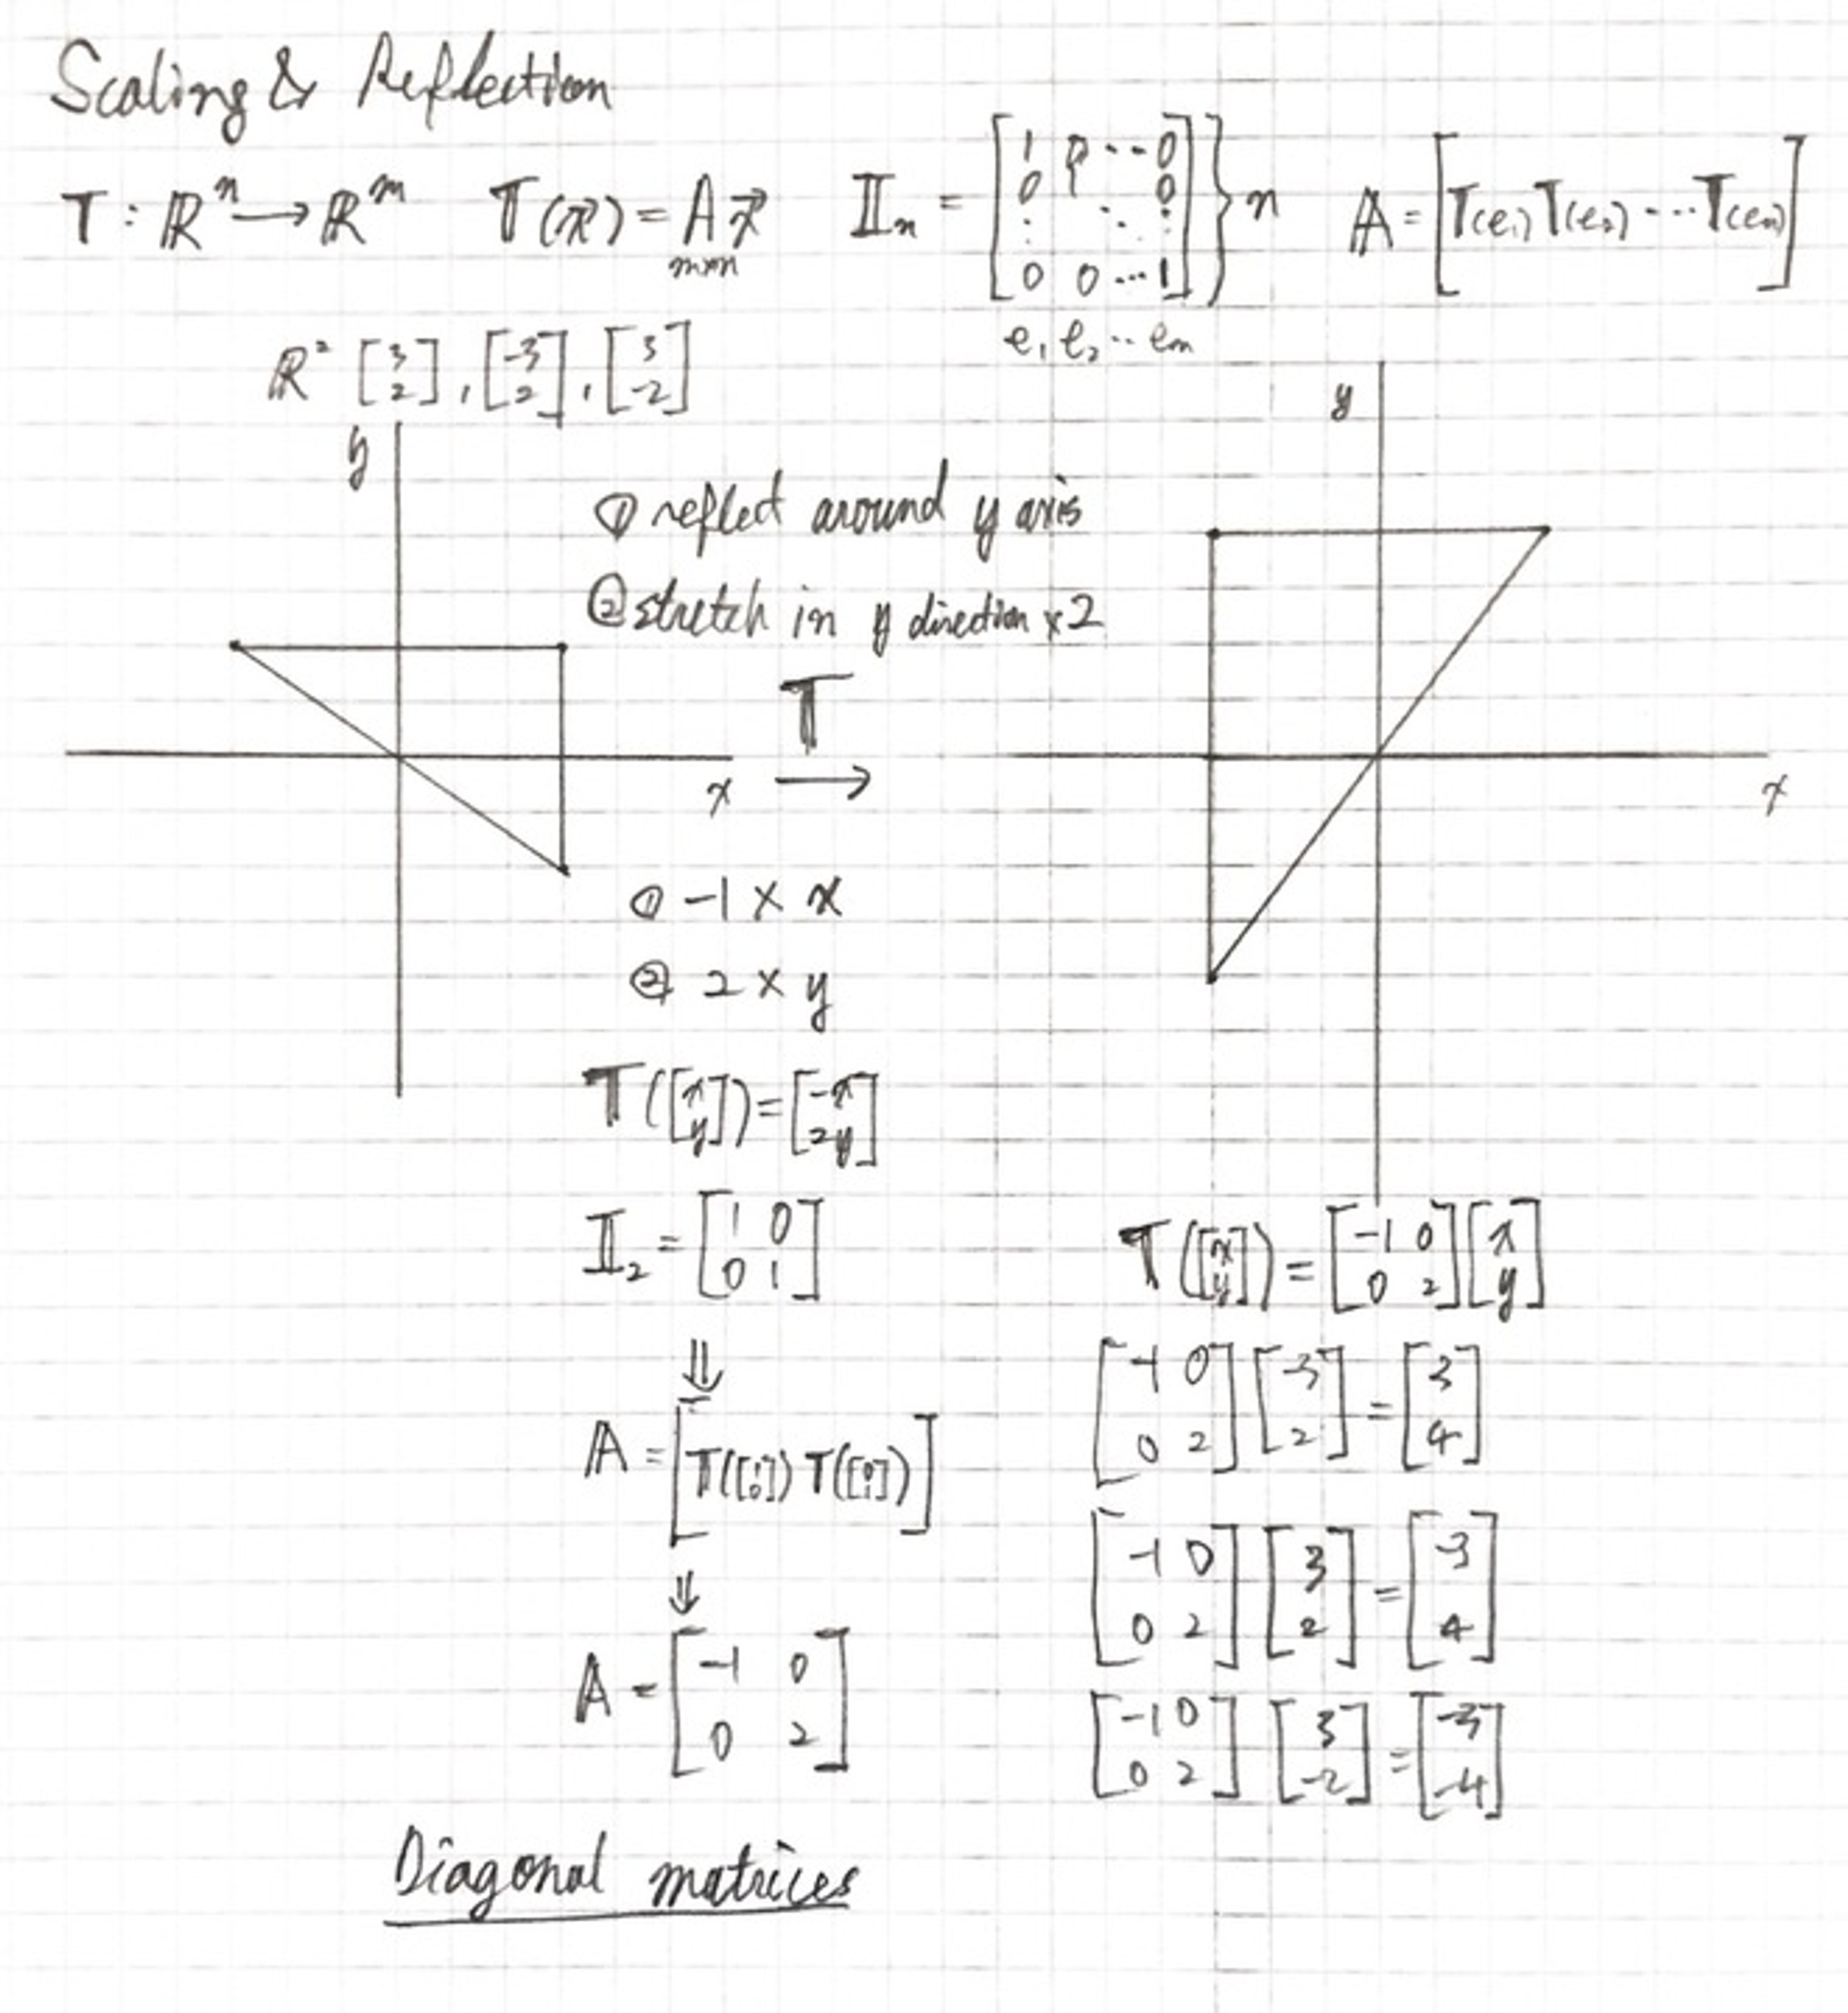 Scaling & Reflection
T : ℝⁿ → ℝᵐ T(x⃗) = A x⃗ 𝕀ₙ = [1 0 ⋯ 0; 0 1 0; ⋮ ⋱ ⋮; 0 0 ⋯ 1] } n 𝔸 = [T(e₁) T(e₂) ⋯ T(eₙ)]
m×n
e₁ e₂ ⋯ eₙ
ℝ² [3; 2], [-3; 2], [3; -2]
y
y
① reflect around y axis
② stretch in y direction × 2
T
→
x
x
① -1 × x
② 2 × y
T([x; y]) = [-x; 2y]
𝕀₂ = [1 0; 0 1]
⇓
𝔸 = [T([1; 0]) T([0; 1])]
⇓
𝔸 = [-1 0; 0 2]
T([x; y]) = [-1 0; 0 2] [x; y]
[-1 0; 0 2] [-3; 2] = [3; 4]
[-1 0; 0 2] [3; 2] = [-3; 4]
[-1 0; 0 2] [3; -2] = [-3; -4]
Diagonal matrices